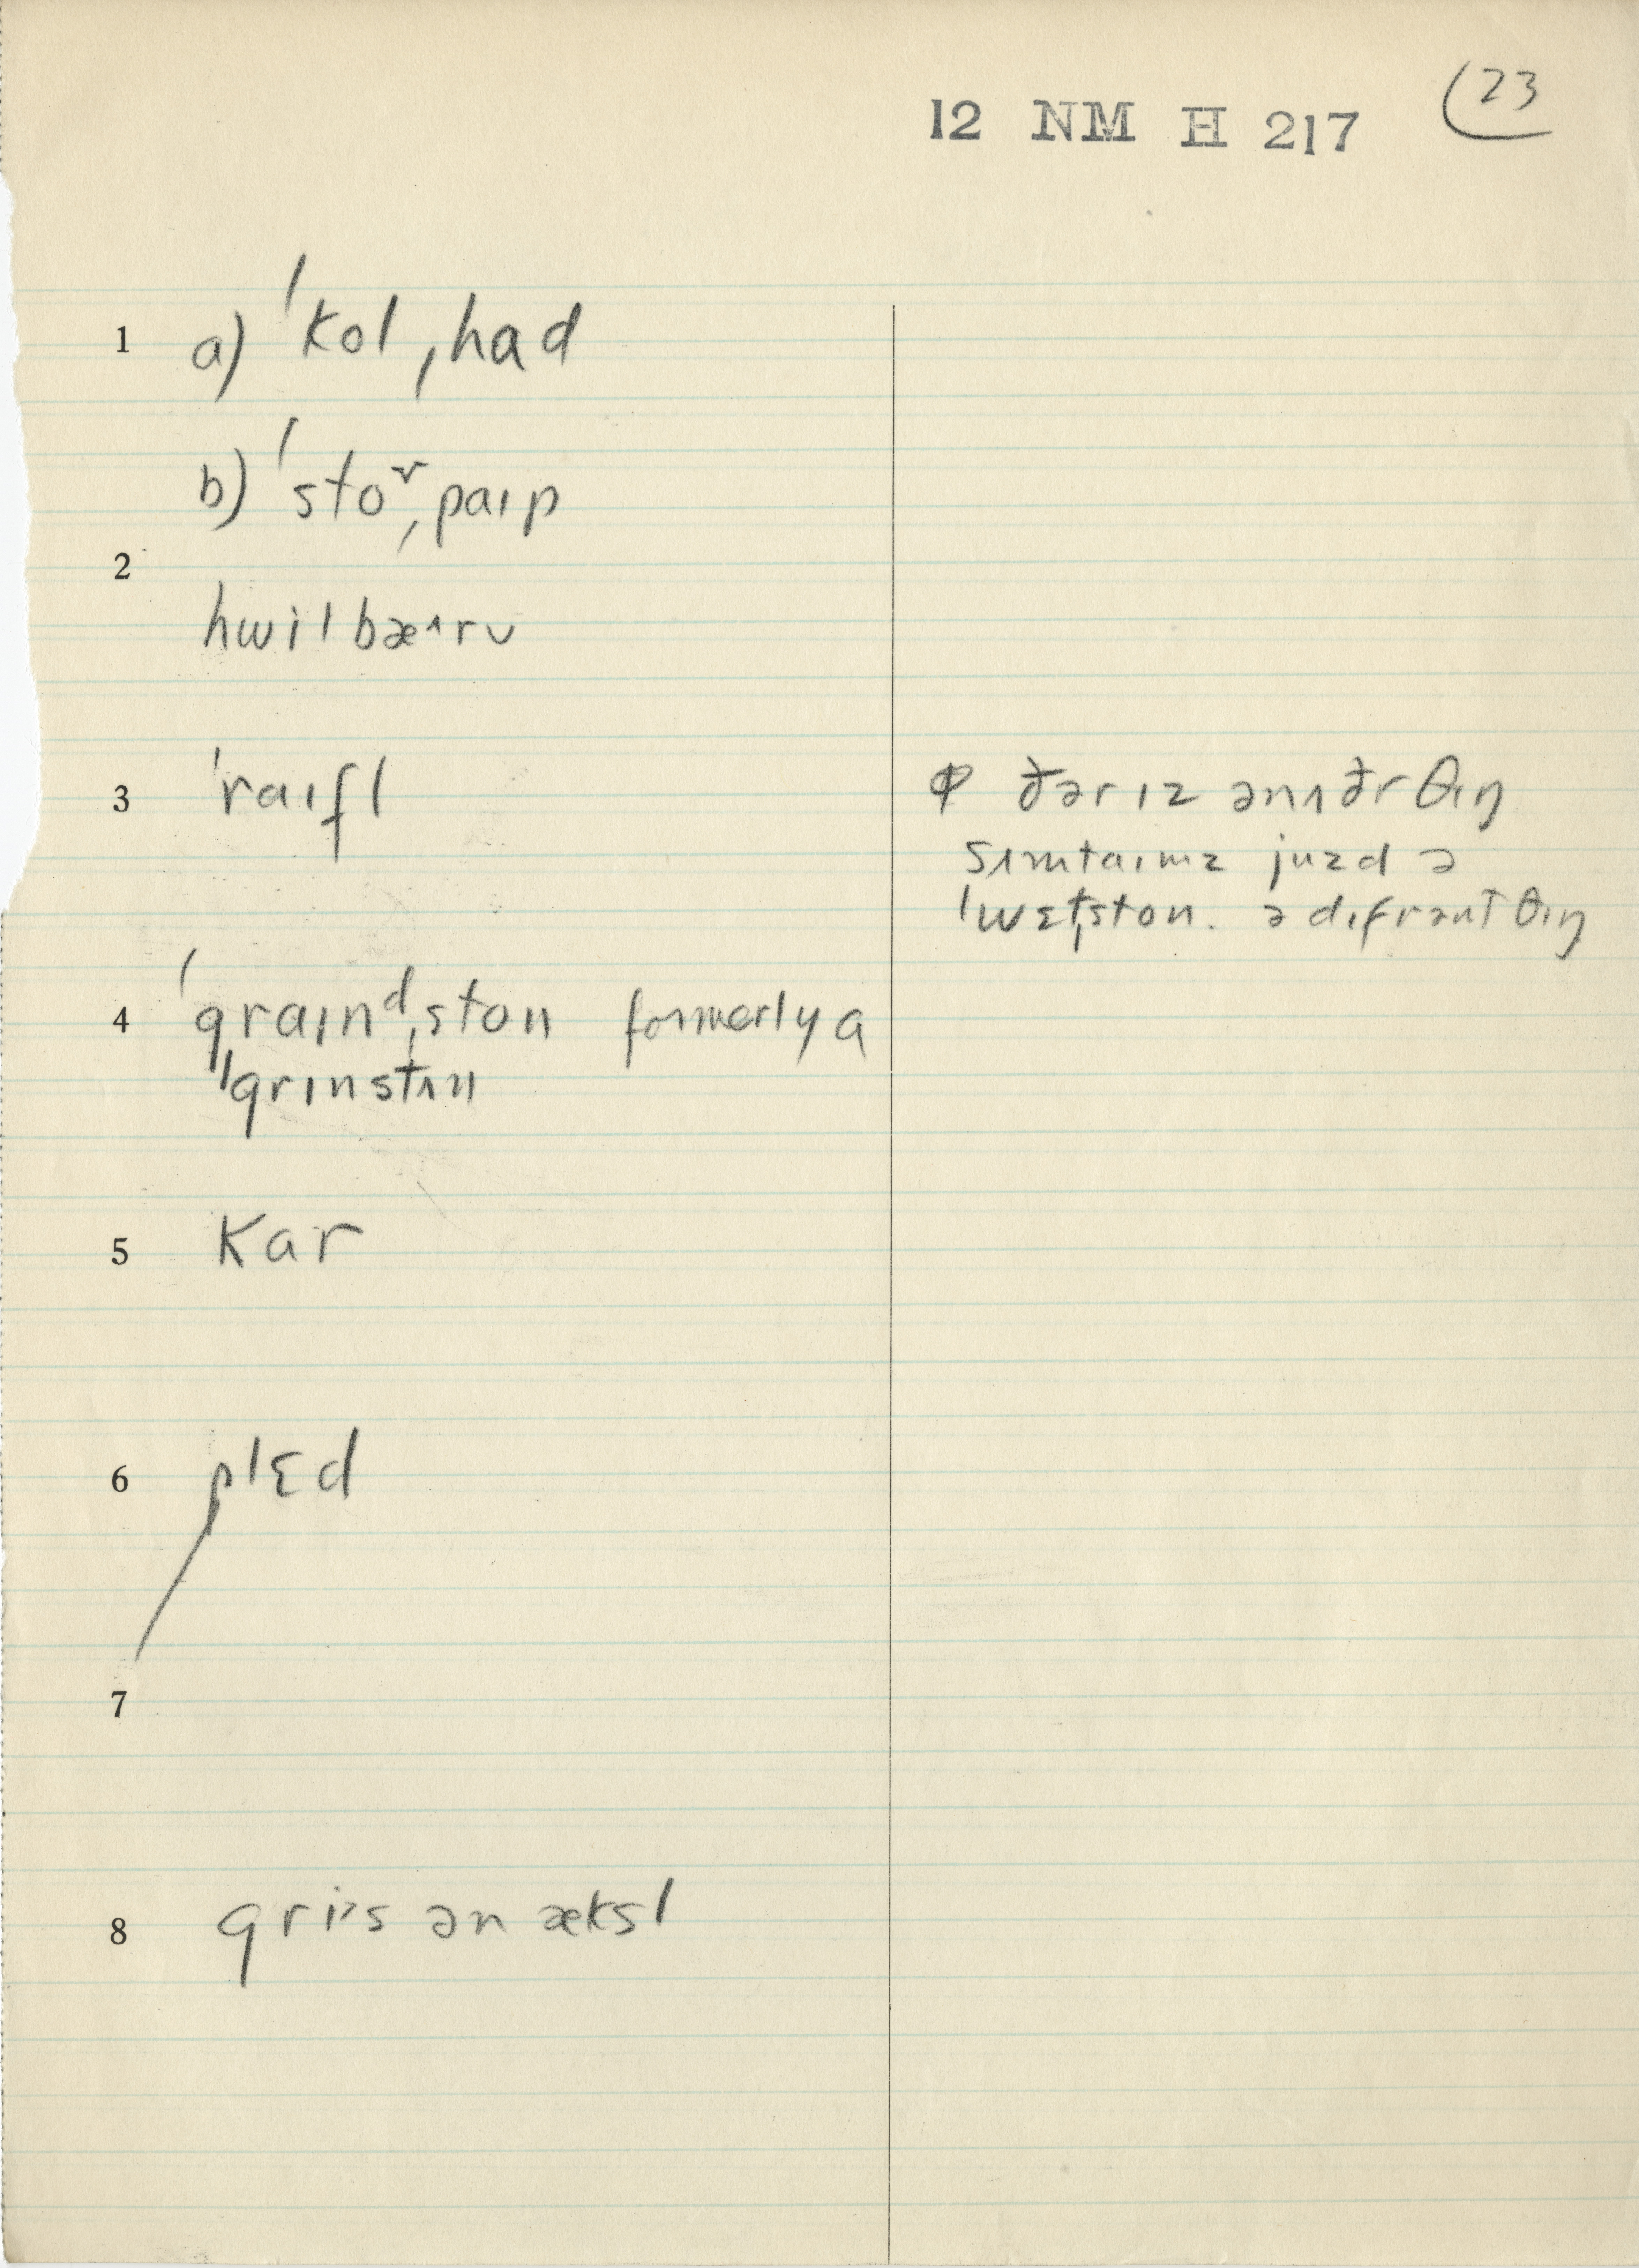 12 NM H 217
23
1 a) ˈkol ˌhad
b) ˈstoʳ ˌpaɪp
2
hwil bæ˄rʊ
3 ˈraɪfl
ꟼ ðər ɪz ənʌðr θɪŋ
sʌmtaɪmz juzd ə
ˈwɛtˌston. ə dɪfrənt θɪŋ
4 ˈgraɪnᵈˌston formerly a
ˈgrɪnstʌn
5 kar
6 plɛd
7
8 gri˃s ən æksl